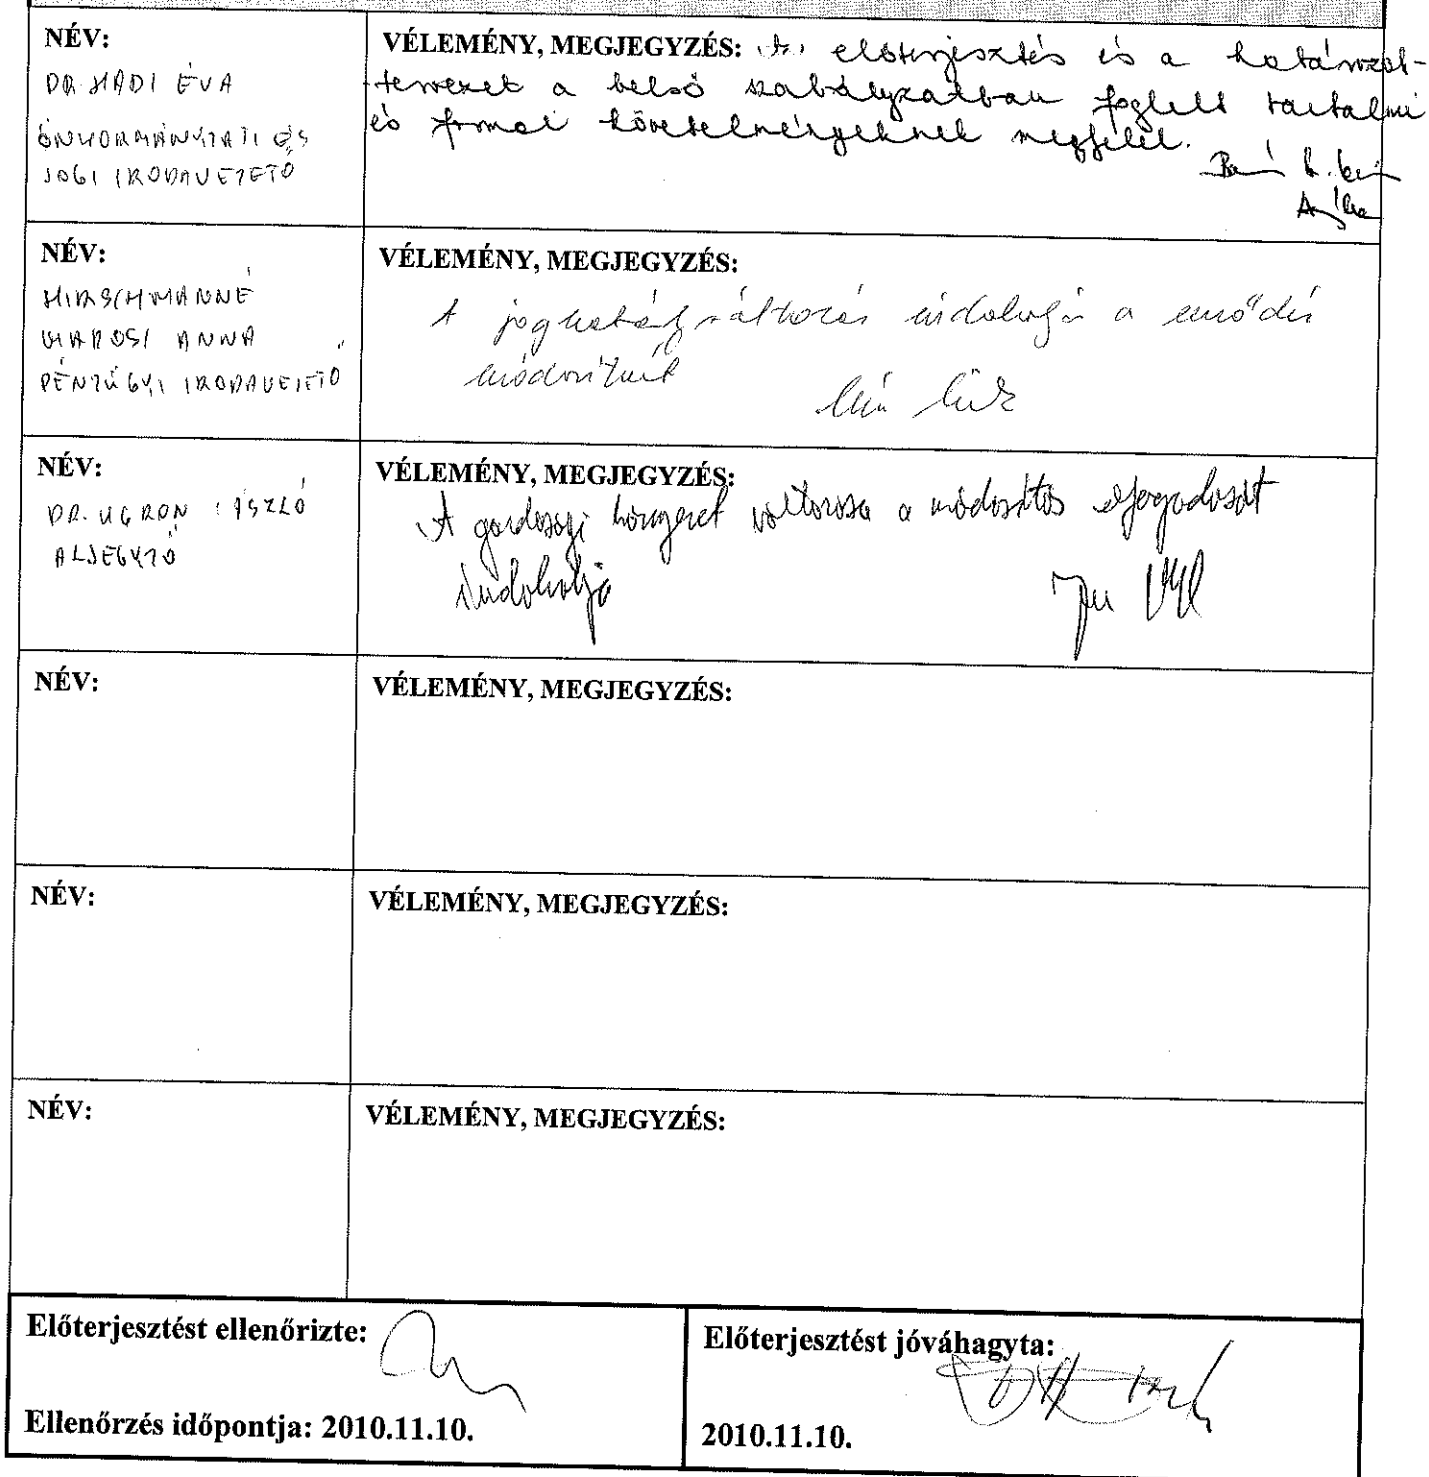 NÉV:
DR. HADI ÉVA
ÖNKORMÁNYZATI ÉS
JOGI IRODAVEZETŐ
VÉLEMÉNY, MEGJEGYZÉS: Az előterjesztés és a határozat-
tervezet a belső szabályzatban foglalt tartalmi
és formai követelményeknek megfelel.
NÉV:
HIRSCHMANNÉ
MAROSI ANNA
PÉNZÜGYI IRODAVEZETŐ
VÉLEMÉNY, MEGJEGYZÉS:
A jogszabályváltozás indokolja a
NÉV:
DR. UGRON LÁSZLÓ
ALJEGYZŐ
VÉLEMÉNY, MEGJEGYZÉS:
A gazdasági környezet változása a módosítás elfogadását
indokolja
NÉV:
VÉLEMÉNY, MEGJEGYZÉS:
NÉV:
VÉLEMÉNY, MEGJEGYZÉS:
NÉV:
VÉLEMÉNY, MEGJEGYZÉS:
Előterjesztést ellenőrizte:
Ellenőrzés időpontja: 2010.11.10.
Előterjesztést jóváhagyta:
2010.11.10.